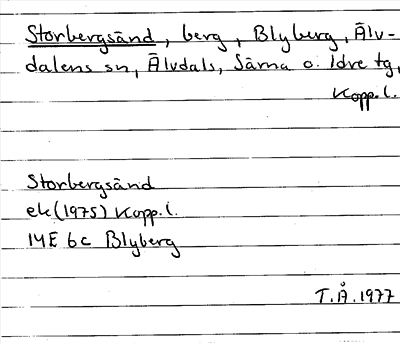 Storbergsänd, berg, Blyberg, Älv-
dalens sn, Älvdals, Särna o. Idre tg,
Kopp. l.
Storbergsänd
ek (1975) Kopp. l.
14E 6c Blyberg
T.Å. 1977